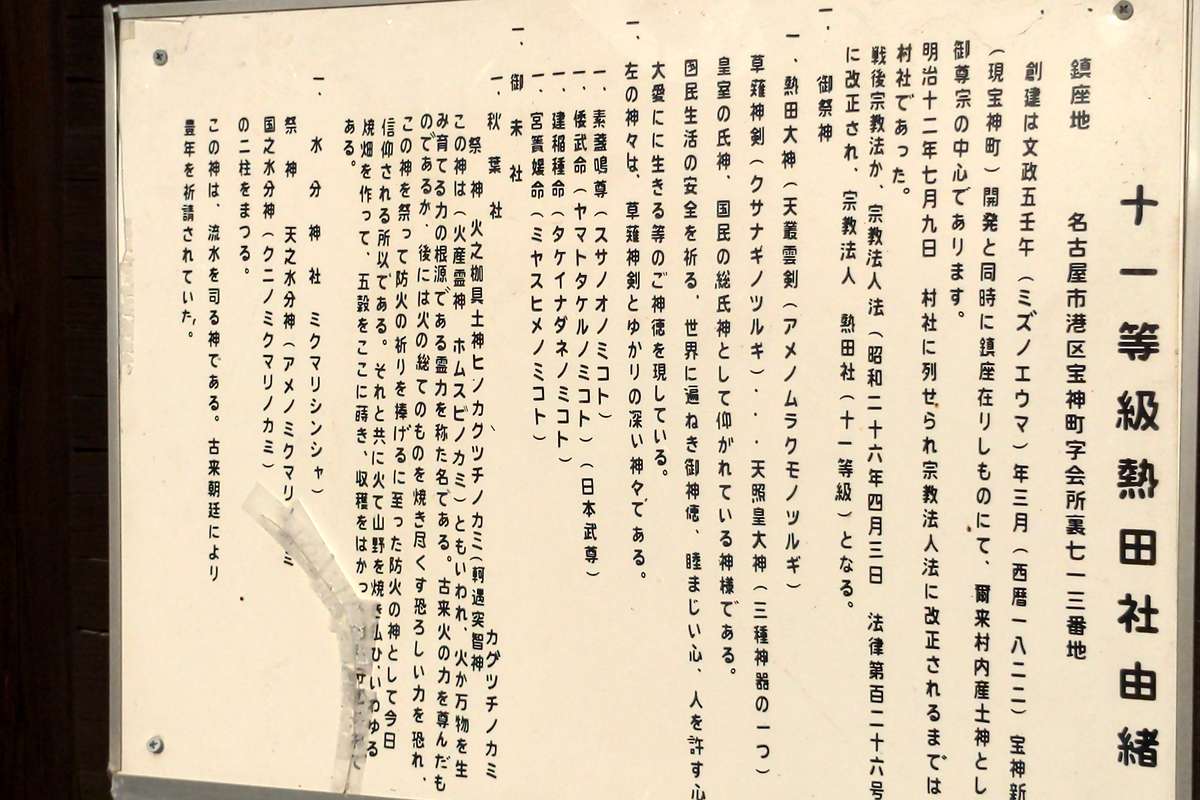 十一等級熱田社由緒
鎮座地　名古屋市港区宝神町字会所裏七一三番地
創建は文政五壬午（ミズノエウマ）年三月（西暦一八二二）宝神新
（現宝神町）開発と同時に鎮座在りしものにて、爾来村内産土神とし
御尊宗の中心であります。
明治十二年七月九日　村社に列せられ宗教法人法に改正されるまでは
村社であった。
戦後宗教法か、宗教法人法（昭和二十六年四月三日　法律第百二十六号
に改正され、宗教法人　熱田社（十一等級）となる。
一、御祭神
一、熱田大神（天叢雲剣（アメノムラクモノツルギ）
草薙神剣（クサナギノツルギ）・・天照皇大神（三種神器の一つ）
皇室の氏神、国民の総氏神として仰がれている神様である。
国民生活の安全を祈る、世界に遍ねき御神徳、睦まじい心、人を許す心
大愛にに生きる等のご神徳を現している。
一、左の神々は、草薙神剣とゆかりの深い神々である。
一、素盞鳴尊（スサノオノミコト）
一、倭武命（ヤマトタケルノミコト）（日本武尊）
一、建稲種命（タケイナダネノミコト）
一、宮簀媛命（ミヤスヒメノミコト）
一、御末社
一、秋葉社　カグツチノカミ
祭神　火之枷具土神ヒノカグツチノカミ（軻遇突智神
この神は（火産霊神　ホムスビノカミ）ともいわれ、火か万物を生
み育てる力の根源である霊力を称た名である。古来火の力を尊んだも
のであるか、後には火の総てのものを焼き尽くす恐ろしい力を恐れ、
この神を祭って防火の祈りを捧げるに至った防火の神として今日
信仰される所以である。それと共に火て山野を焼き払ひ、いわゆる
焼畑を作って、五穀をここに蒔き、収穫をはかっ
ある。
一、水分神社　ミクマリシンシャ）
祭神　天之水分神（アメノミクマリ　ミ
国之水分神（クニノミクマリノカミ）
の二柱をまつる。
この神は、流水を司る神である。古来朝廷により
豊年を祈請されていた。